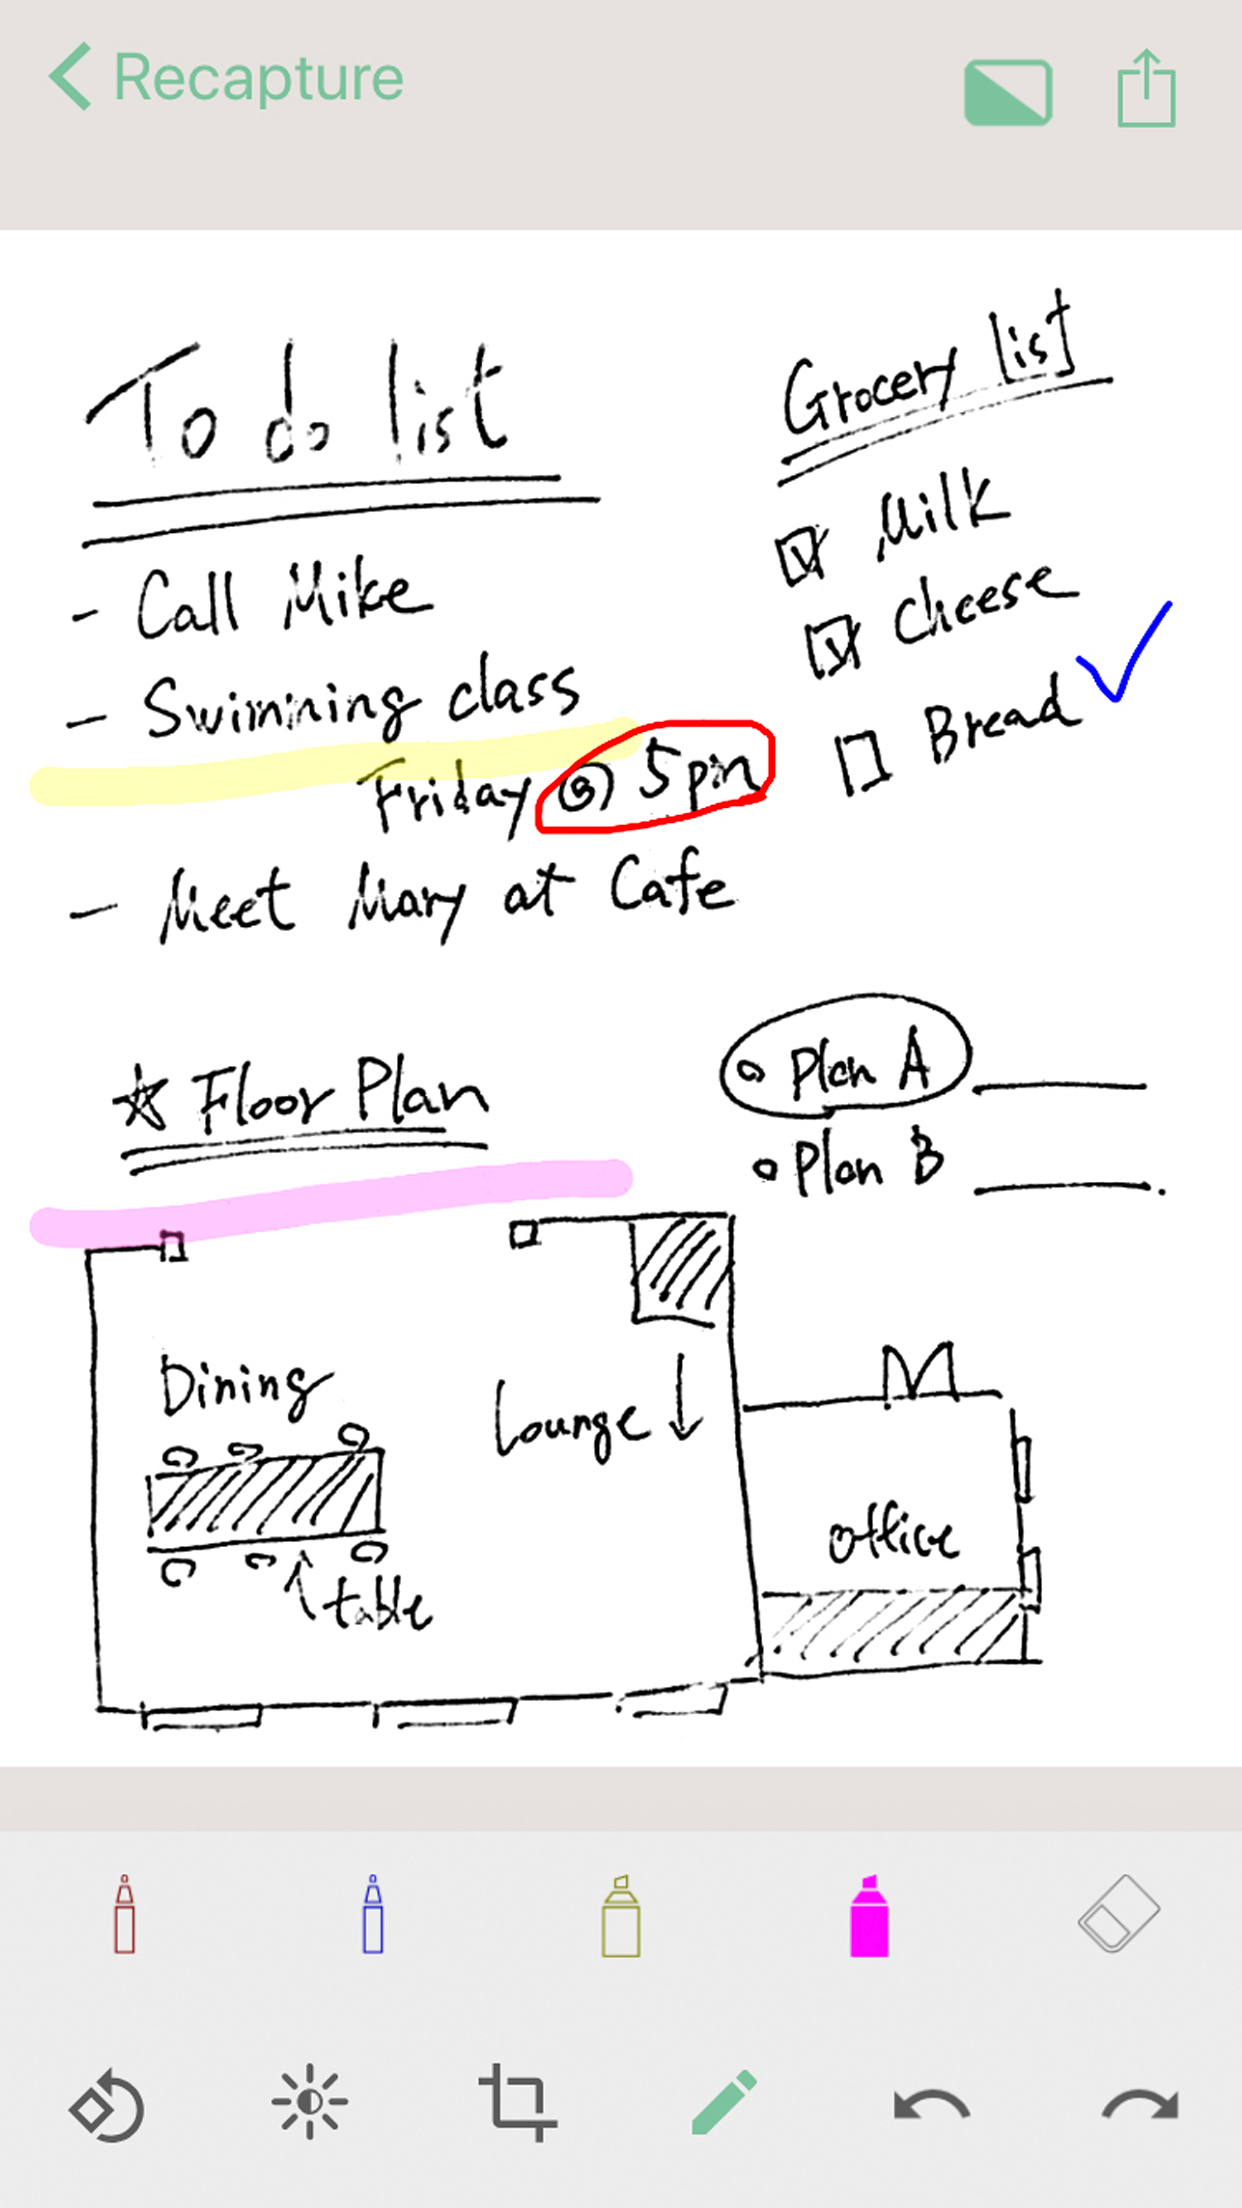 Recapture
To do list
- Call Mike
- Swimming class
Friday @ 5pm
- Meet Mary at Cafe
Grocery list
☑ Milk
☑ Cheese
☐ Bread ✓
☆ Floor Plan
Plan A
Plan B
Dining
Lounge ↓
↑ table
office